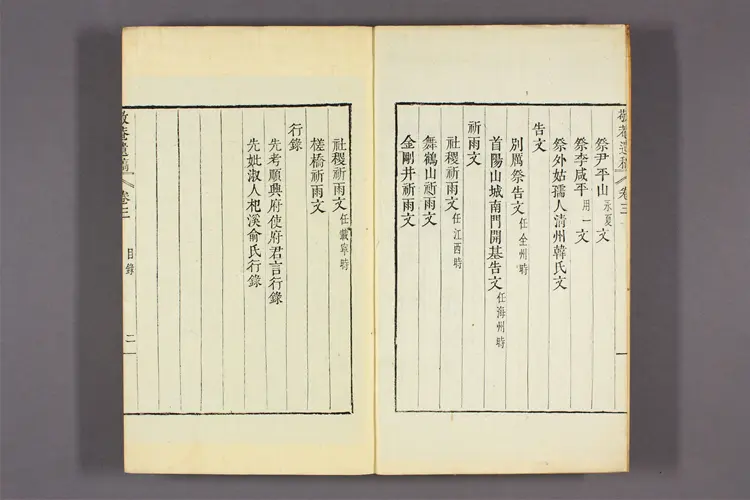 敬菴遺稿 卷三
祭尹平山永夏文
祭李咸平用一文
祭外姑孺人淸州韓氏文
告文
別厲祭告文任全州時
首陽山城南門開基告文任海州時
祈雨文
社稷祈雨文任江西時
舞鶴山祈雨文
金剛井祈雨文
社稷祈雨文任載寧時
槎橋祈雨文
行錄
先考順興府使府君言行錄
先妣淑人杞溪俞氏行錄
敬菴遺稿 卷三 目錄 二